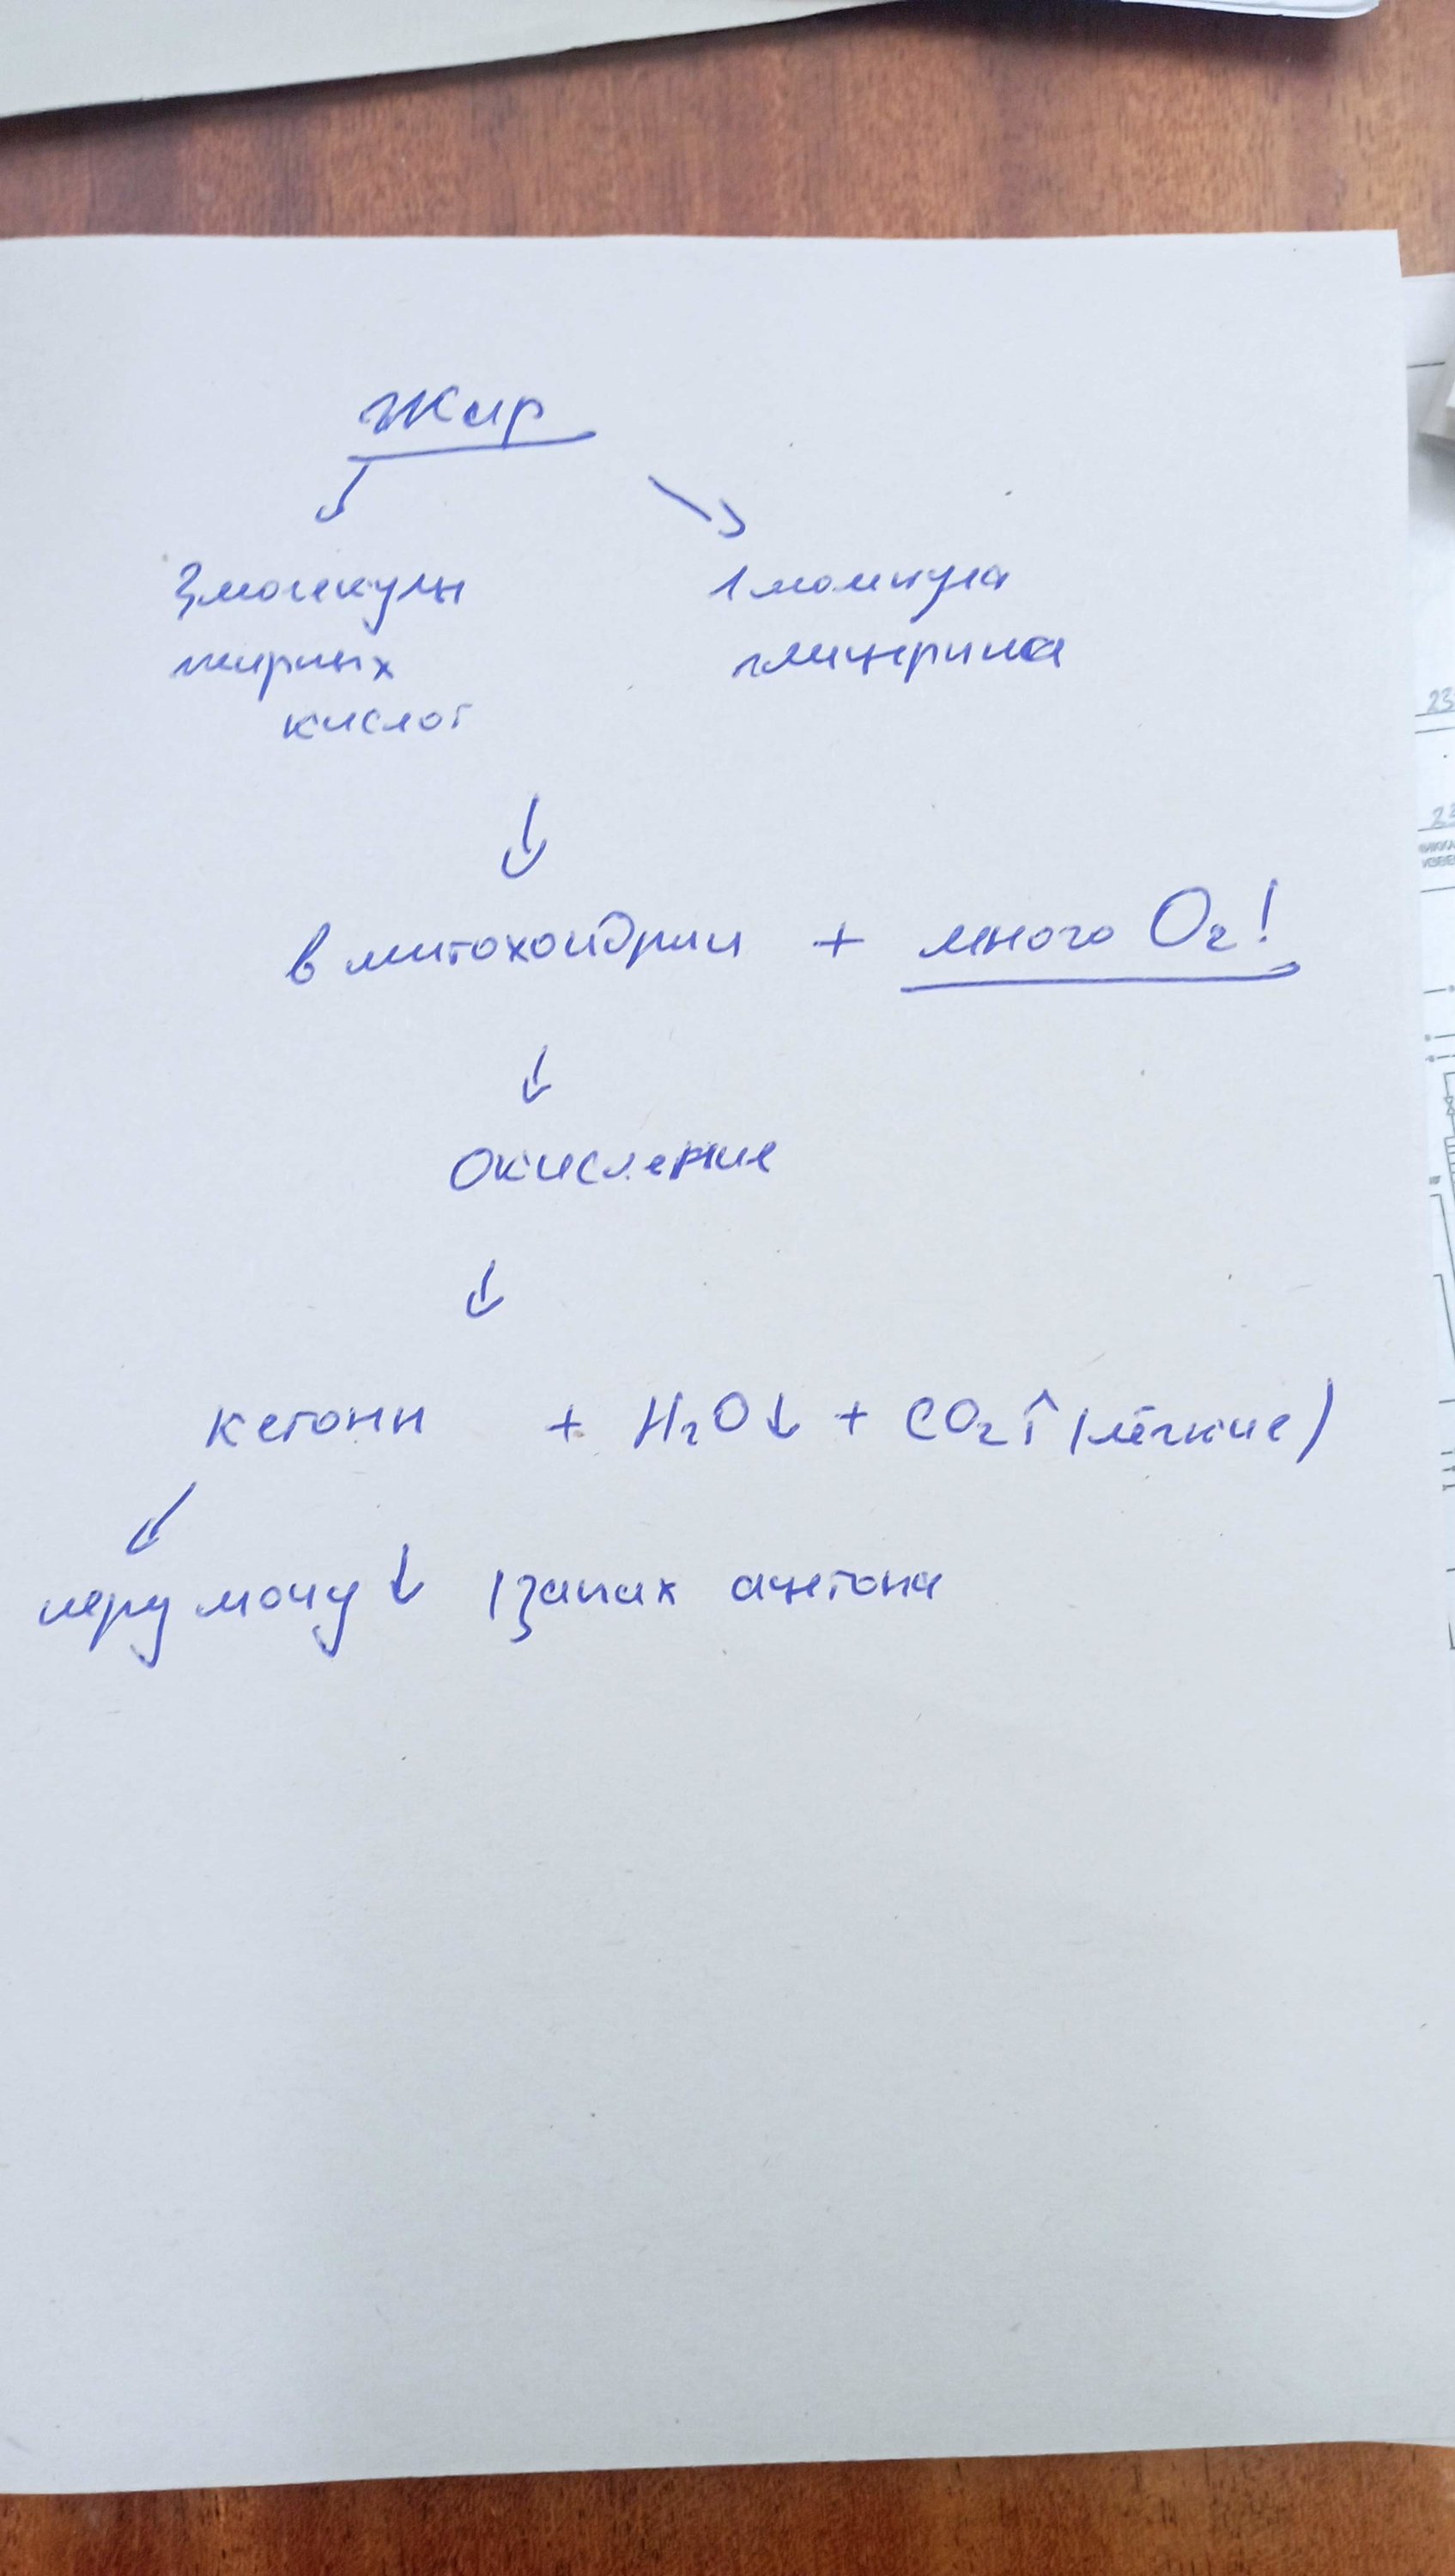 Жир
3 молекулы 1 молекула
жирных глицерина
кислот
в митохондрии + много O2!
окисление
кетоны + H2O↓ + CO2↑ (лёгкие)
мочу↓ (запах ацетона
23